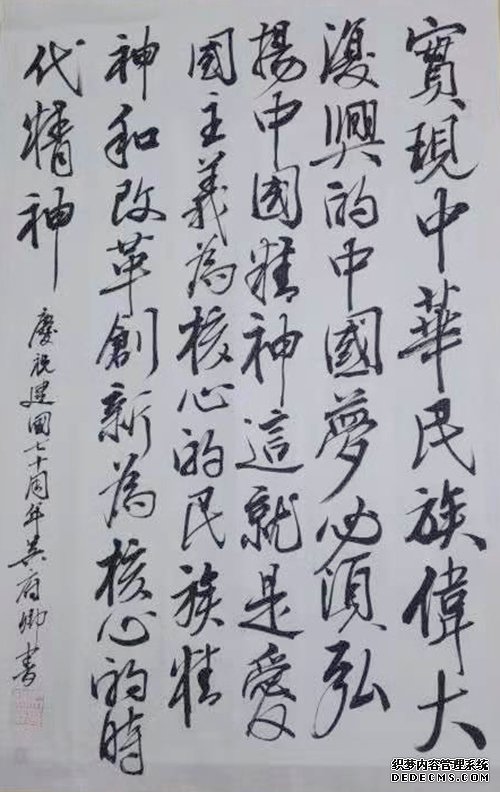 實現中華民族偉大
復興的中國夢必須弘
揚中國精神這就是愛
國主義為核心的民族精
神和改革創新為核心的時
代精神
慶祝建國七十周年吳府卿書
织梦内容管理系统
DEDECMS.COM